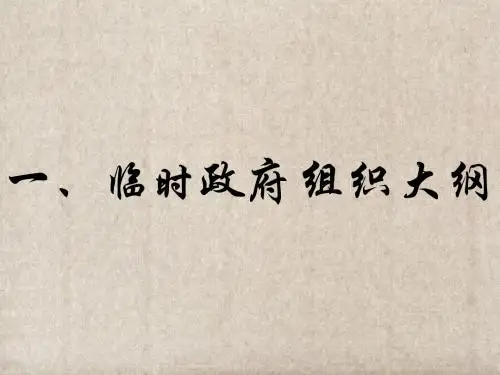 一、临时政府组织大纲